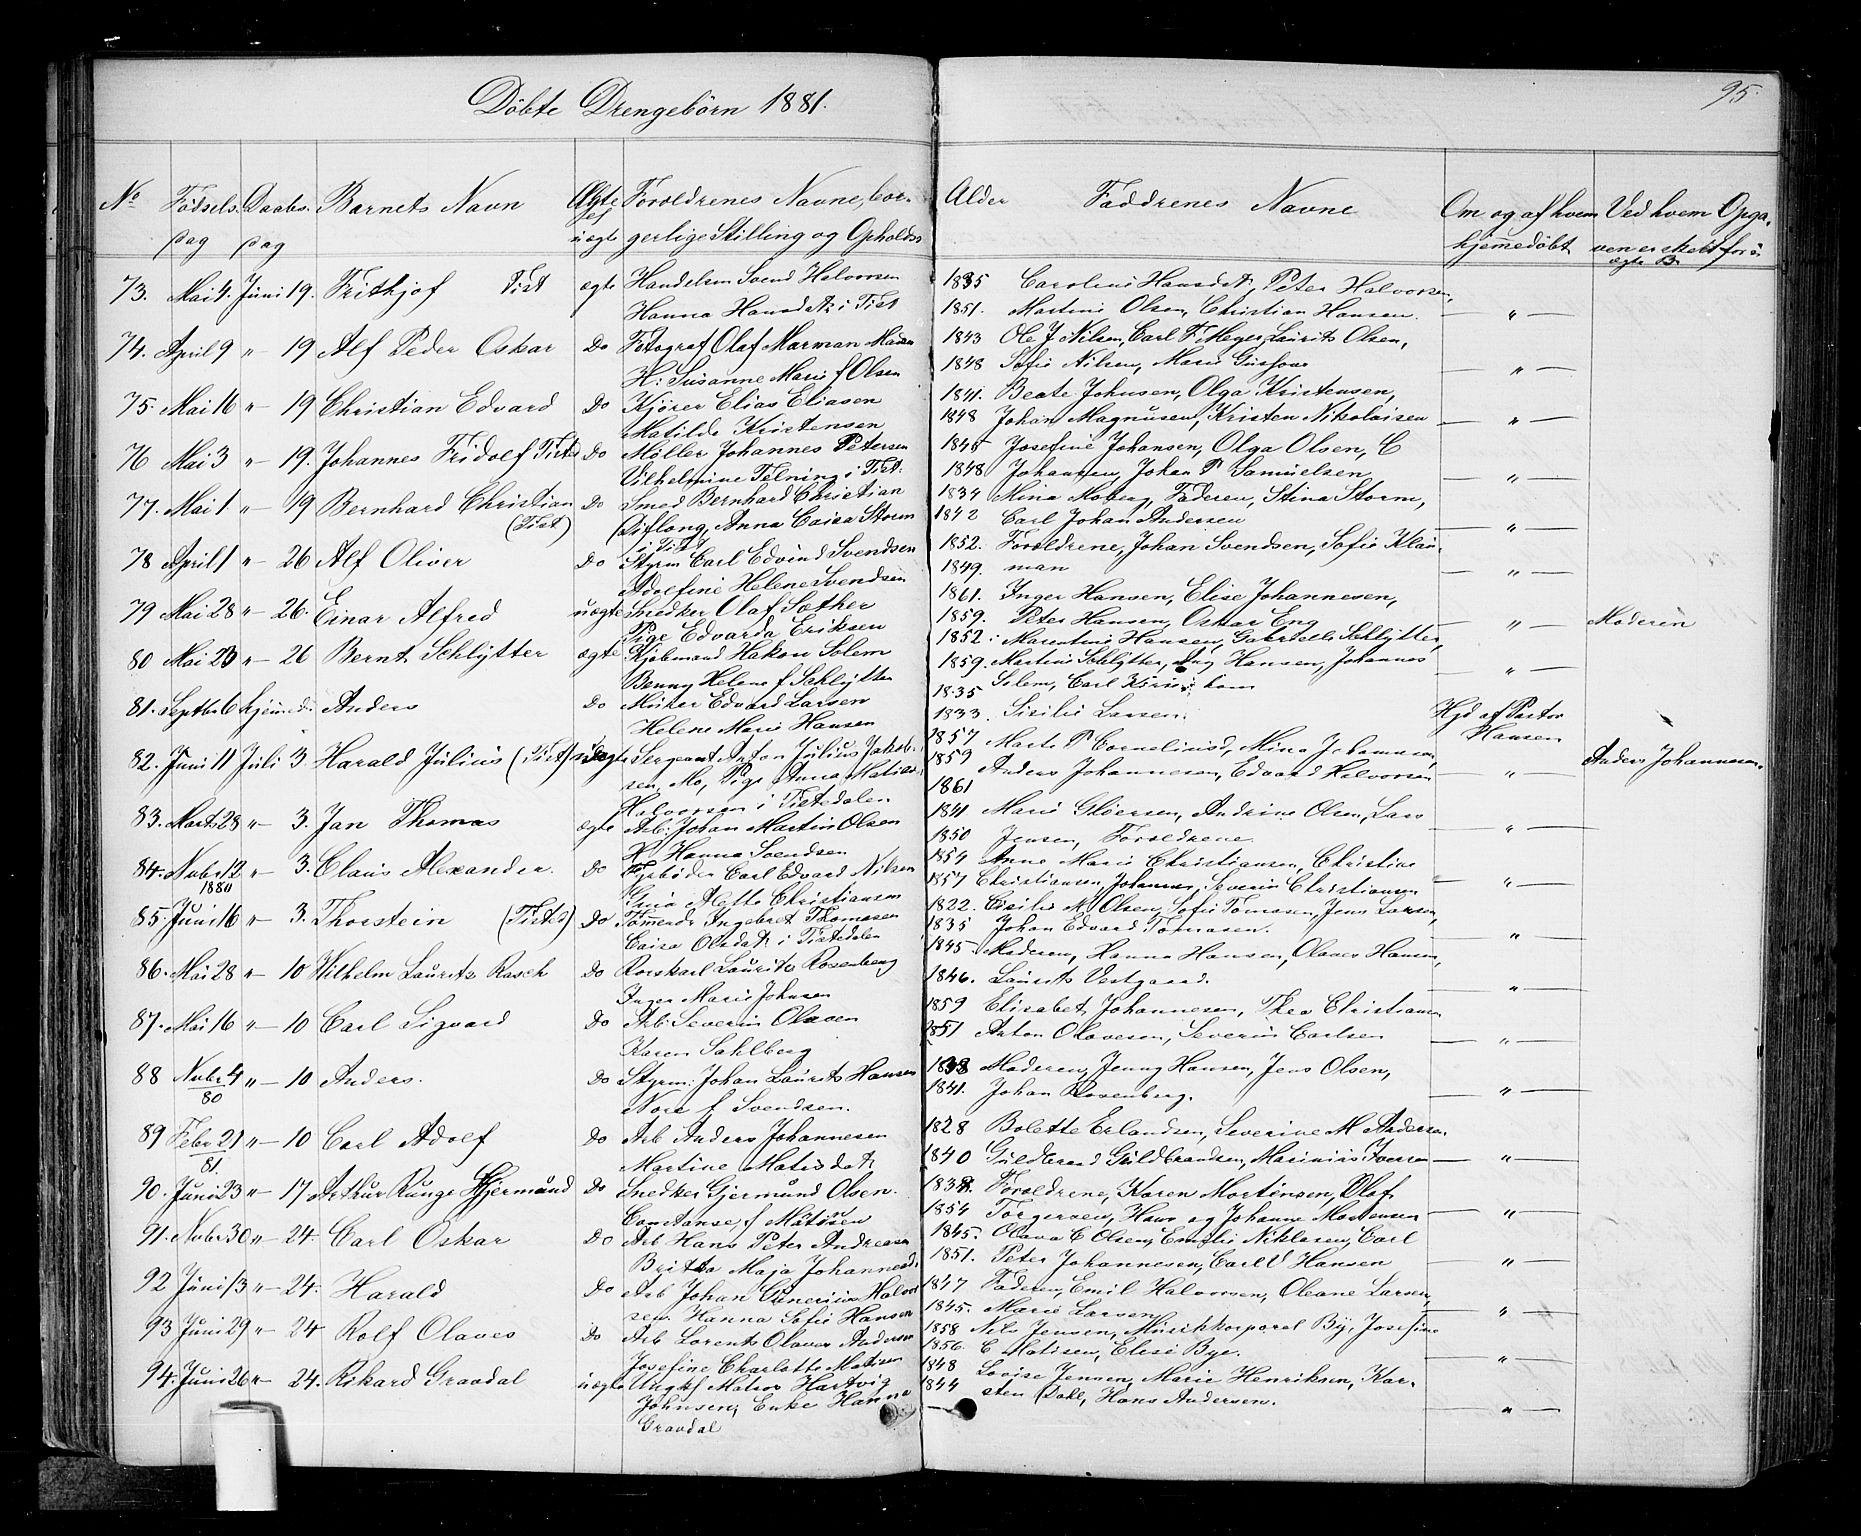 Döbte Drengebörn 1881.
95.
No Fødsels Daabs Barnets Navn Ægte Foroldrenes Navne, bor- Alder Faddrenes Navne Om og af hvem Ved hvem Opga-
dag dag uægte gerlige Stilling og Opholds hjemmedöbt ven er skeet for
73. Mai 4. Juni 19. Frithjof Tist ægte Handelsm Svend Halvorsen 1835 Caroline Hansdt, Peter Halvorsen,
Hanna Hansdtr i Tist 1851. Martine Olsen, Christian Hansen. — " —
74. April 9 " 19 Alf Peder Oskar Do Fotograf Olaf Marman Madsen 1843 Ole J Nilsen, Carl F Meyer, Laurits Olsen,
H: Susanne Marie f Olsen 1848 Sofie Nilsen, Marie — " —
75. Mai 16 " 19 Christian Edvard Do Kjører Elias Eliasen 1841. Beate Johnsen, Olga Kristensen,
Matilde Kristensen 1848 Johan Magnusen, Kristen Nikolaisen — " —
76 Mai 3 " 19. Johannes Fridolf Tist Do Møller Johannes Petersen 1845 Josefine Johansen, Olga Olsen, C
Vilhelmine Felning i Tist. 1848 Johannsen, Johan P Samuelsen — " —
77. Mai 1 " 19 Bernhard Christian Do Smed Bernhard Christian 1834 Mina Moberg, Faderen, Stina Storm,
(Tist) Anna Caisa Storm 1842 Carl Johan Andersen — " —
i Tist
78 April 1 " 26 Alf Oliver Do Styrm Carl Edvind Svendsen 1852. Foroldrene, Johan Svendsen, Sofie Klau-
Adolfine Helene Svendsen 1849. man — " —
79 Mai 28 " 26. Einar Alfred uægte Snedker Olaf Sæther 1861. Inger Hansen, Elise Johannesen,
Pige Edvarda Eriksen 1859. Peter Hansen, Oskar Eng — " — Moderen
80 Mai 23 " 26 Bernt Schlytter ægte Kjøbmand Hakon Solem 1852. Marentine Hansen, Gabrielle Schlytter,
Benny Helene f Schlytter 1859. Martine Schlytter, Aug Hansen, Johannes — " —
81. Septbr 6 hjemmed. Anders Do Murer Edvard Larsen 1835 Solem, Carl
Helene Marie Hansen 1833. Sisilie Larsen. Hjd af Pastor
Hansen
82. Juni 11 Juli 3 Harald Julius (Tist) uægte Sergeant Anton Julius Jakob- 1857 Marte P Corneliusd, Mina Johannsen,
sen, Mo, Pige Anna Matilde 1859 Anders Johannesen, Edvard Halvorsen — " — Anders Johannesen.
Halvorsen i Tistedalen 1861
83. Marts 28 " 3. Jan Thomas ægte Arb: Johan Martin Olsen 1841 Marie Gløersen, Andrine Olsen, Lars
H: Hanna Svendsen 1850 Jensen, Foroldrene — " —
84. Nvbr 12 " 3. Claus Alexander. Do Fyrbøder Carl Edvard Nilsen 1854 Anne Marie Christiansen, Christine
1880 Gina Mette Christiansen 1857 Christiansen, Johannes, Severin Christiansen — " —
85. Juni 16 " 3. Thorstein (Tist) Do Tømerm Ingebret Thomasen 1822. Cisilie M Olsen, Sofie Tomasen, Jens Larsen,
Caisa Olsdatr i Tistedalen 1835 Johan Edvard Tomasen. — " —
86. Mai 28 " 10 Wilhelm Laurits Rasch Do Rorskarl Laurits Rosenberg 1845 Moderen, Hanna Hansen, Olaves Hansen,
Inger Marie Johnsen 1846. Laurits Vestgaard. — " —
87. Mai 16 " 10 Carl Sigvard Do Arb: Severin Olavesen 1859 Elisabet Johannesen, Thea Christiansen
Karen Sahlberg 1851 Anton Olavesen, Severin Carlsen — " —
88 Nvbr 4 " 10 Anders. Do Styrm: Johan Laurits Hansen 1838 Moderen, Jenny Hansen, Jens Olsen,
80 Nore f Svendsen. 1841. Johan Rosenberg. — " —
89 Febr 21 " 10 Carl Adolf Do Arb Anders Johannesen 1828 Bolette Erlandsen, Severine M Andersen
81. Martine Matisdatr 1840 Guldbrand Guldbrandsen, Marinius Iversen — " —
90. Juni 23 " 17 Arthur Runge Gjermund Do Snedker Gjermund Olsen. 1838. Foroldrene, Karen Mortensen, Olaf
Constanse f Matisen 1854 Torgersen, Hans og Johanne Mortensen — " —
91. Nvbr 30 " 24. Carl Oskar Do Arb Hans Peter Andreasen 1845. Olava C Olsen, Emilie Niklasen, Carl
Britta Maja Johannesd. 1851. Peter Johannesen, Carl V Hansen — " —
92 Juni 13 " 24. Harald Do Arb Johan Halvor- 1847 Faderen, Emil Halvorsen, Oleane Larsen,
sen. Hanna Sofie Hansen 1845. Marie Larsen — " —
93 Juni 29 " 24 Rolf Olaves Do Arb Lorents Olaves Andersen 1858 Nils Jensen, Musikkorporal By, Josefine
Josefine Charlotte Matisen 1856. C Matisen, Elise Bye. — " —
94. Juni 26 " 24. Rikard Graadal uægte Ungkf Matros Hartvig 1848 Lovise Jensen, Marie Henriksen, Kar-
Johnsen, Enke Hanna 1844 sten Dahl, Hans Andersen. — " —
Graadal